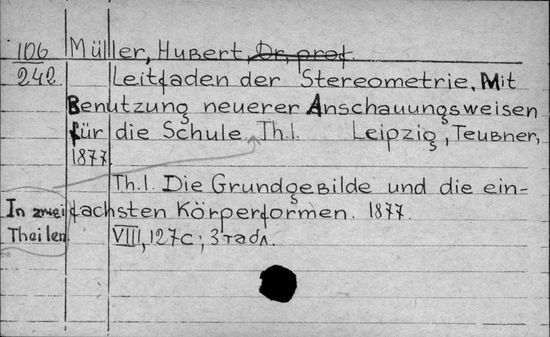 106 Müller, Hubert, Dr, prof.
242 Leitfaden der Stereometrie. Mit
Benutzung neuerer Anschauungsweisen
für die Schule. Th.I. Leipzig, Teubner,
1877.
Th.I. Die Grundgebilde und die ein-
In zwei fachsten Körperformen. 1877.
Theilen VIII, 127c; 3 табл.